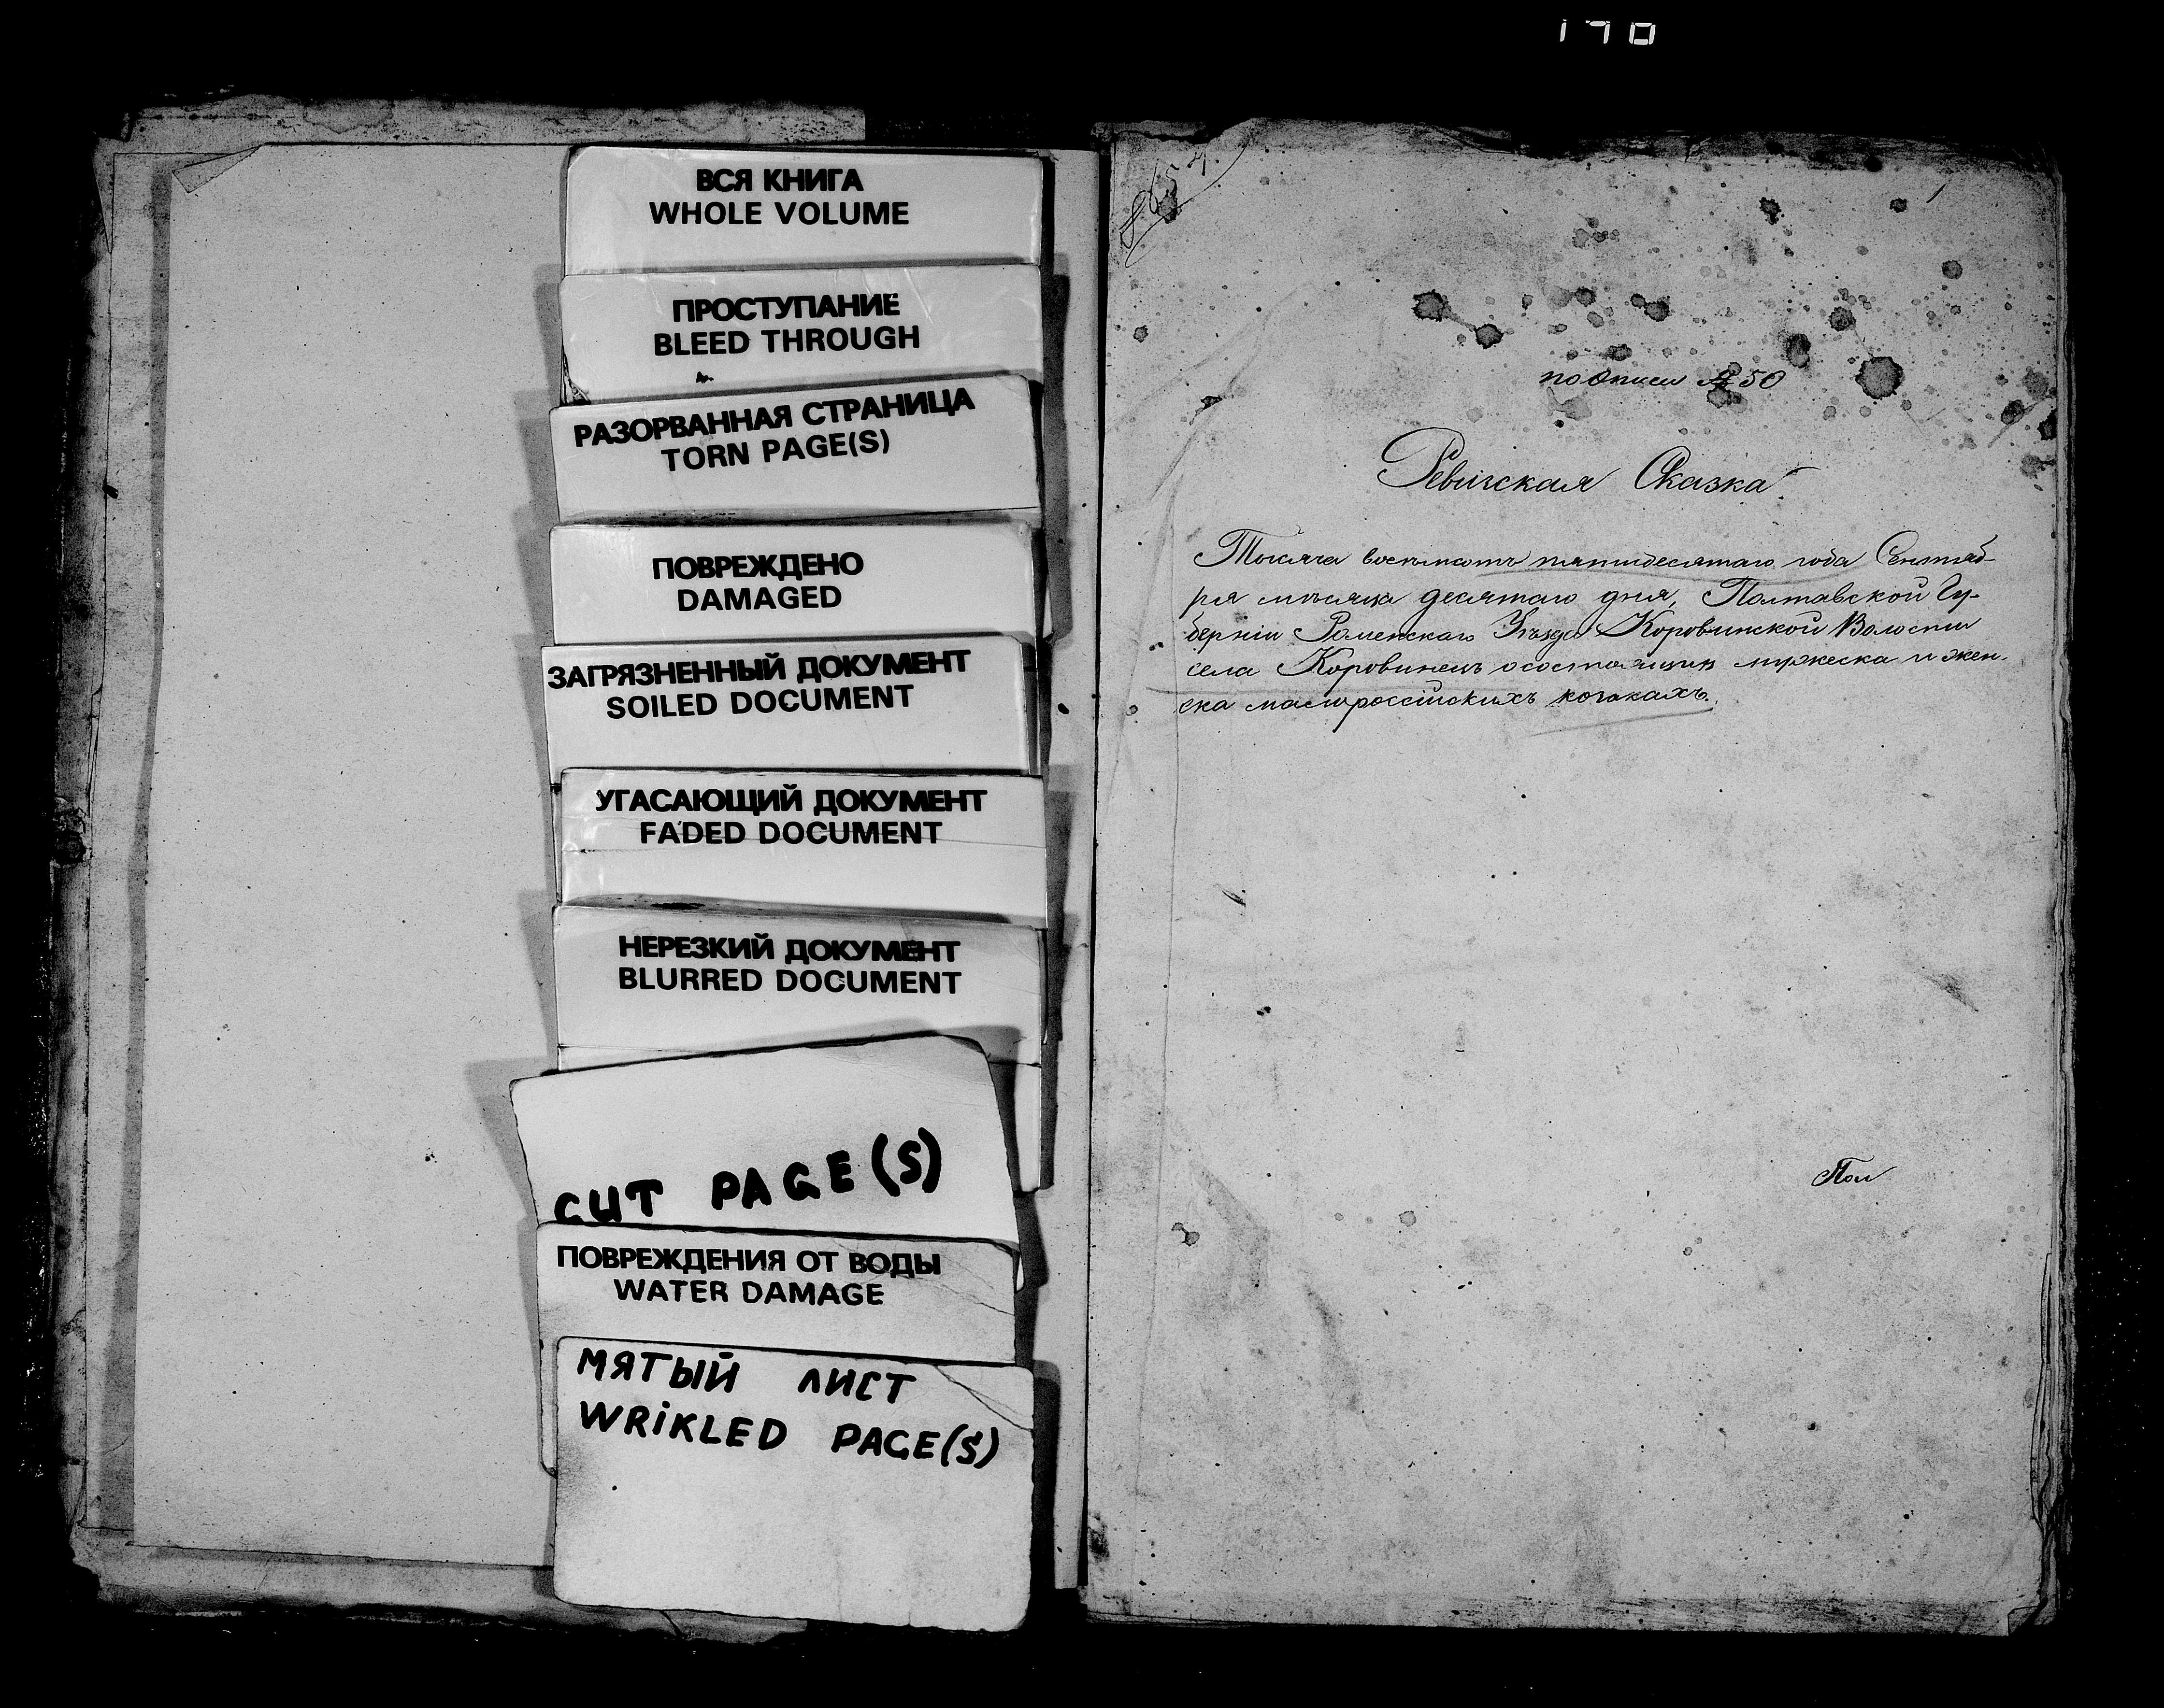 190
ВСЯ КНИГА
WHOLE VOLUME
ПРОСТУПАНИЕ
BLEED THROUGH
РАЗОРВАННАЯ СТРАНИЦА
TORN PAGE(S)
ПОВРЕЖДЕНО
DAMAGED
ЗАГРЯЗНЕННЫЙ ДОКУМЕНТ
SOILED DOCUMENT
УГАСАЮЩИЙ ДОКУМЕНТ
FADED DOCUMENT
НЕРЕЗКИЙ ДОКУМЕНТ
BLURRED DOCUMENT
CUT PAGE(S)
ПОВРЕЖДЕНИЯ ОТ ВОДЫ
WATER DAMAGE
МЯТЫЙ ЛИСТ
WRIKLED PAGE(S)
по описи № 50
Ревизская Сказка.
Тысяча восемьсотъ пятидесятаго года Сентяб-
ря мѣсяца десятаго дня, Полтавской Гу-
берніи Роменскаго Уѣзда Коровинской Волости
села Коровинецъ о состоящихъ мужеска и жен-
ска малороссійскихъ козакахъ.
Пол